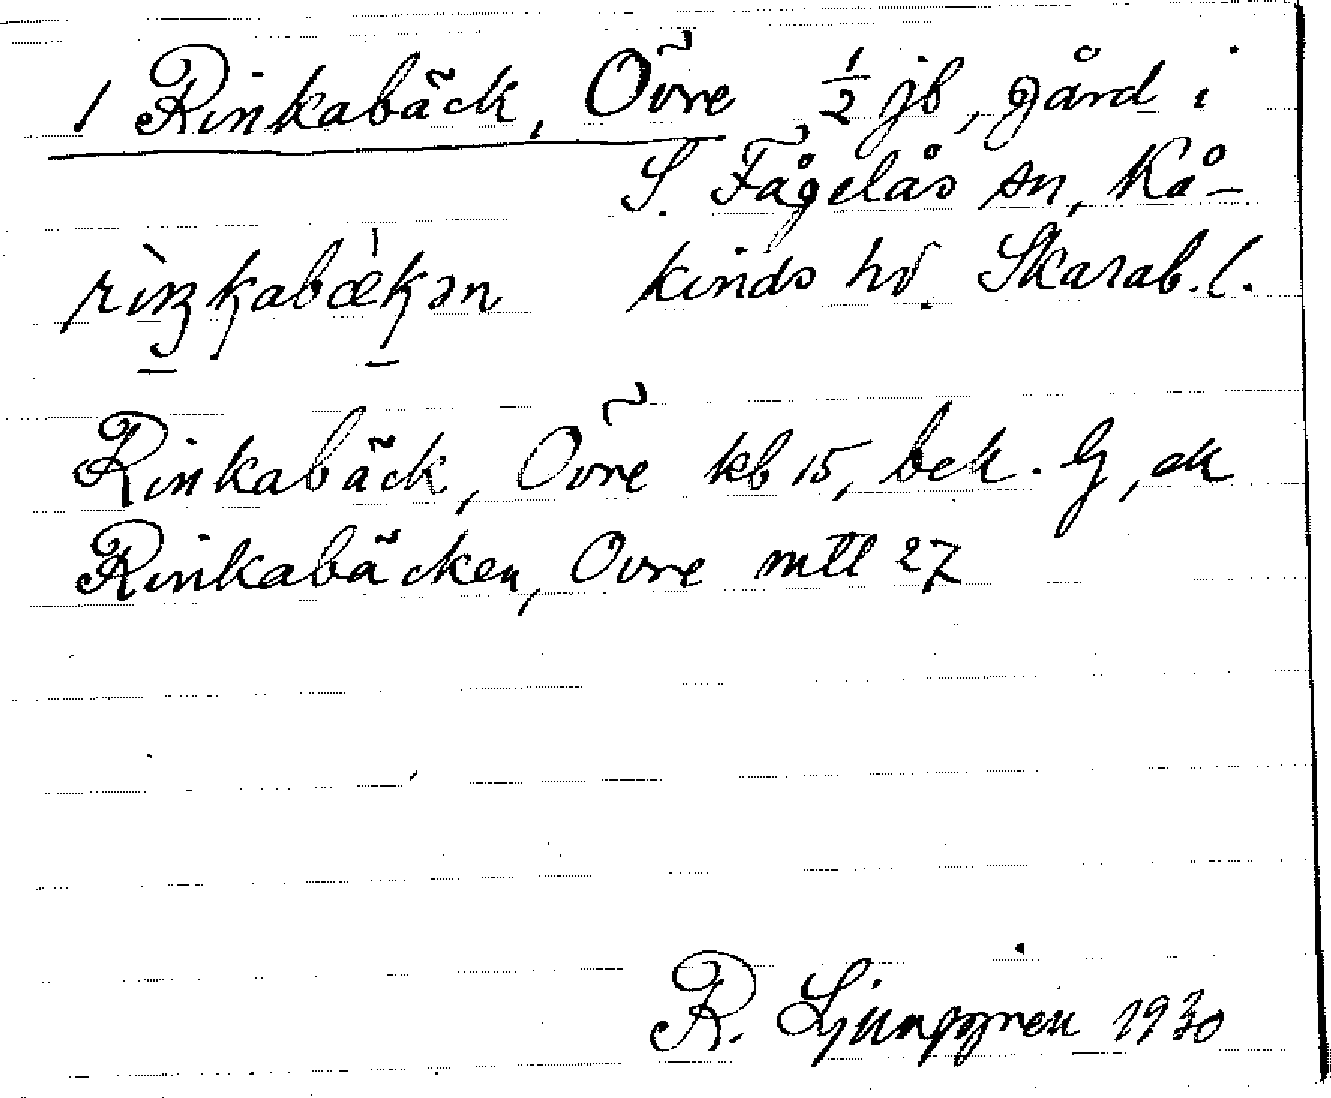 1 Rinkabäck, Övre ½ jb, gård i
S. Fågelås sn, Kå-
kinds hd. Skarab. l.
rìŋkabæ̀kən
Rinkabäck, Övre kb 15, bek. G, ek
Rinkabäcken, Övre mtl 27
R. Ljunggren 1930